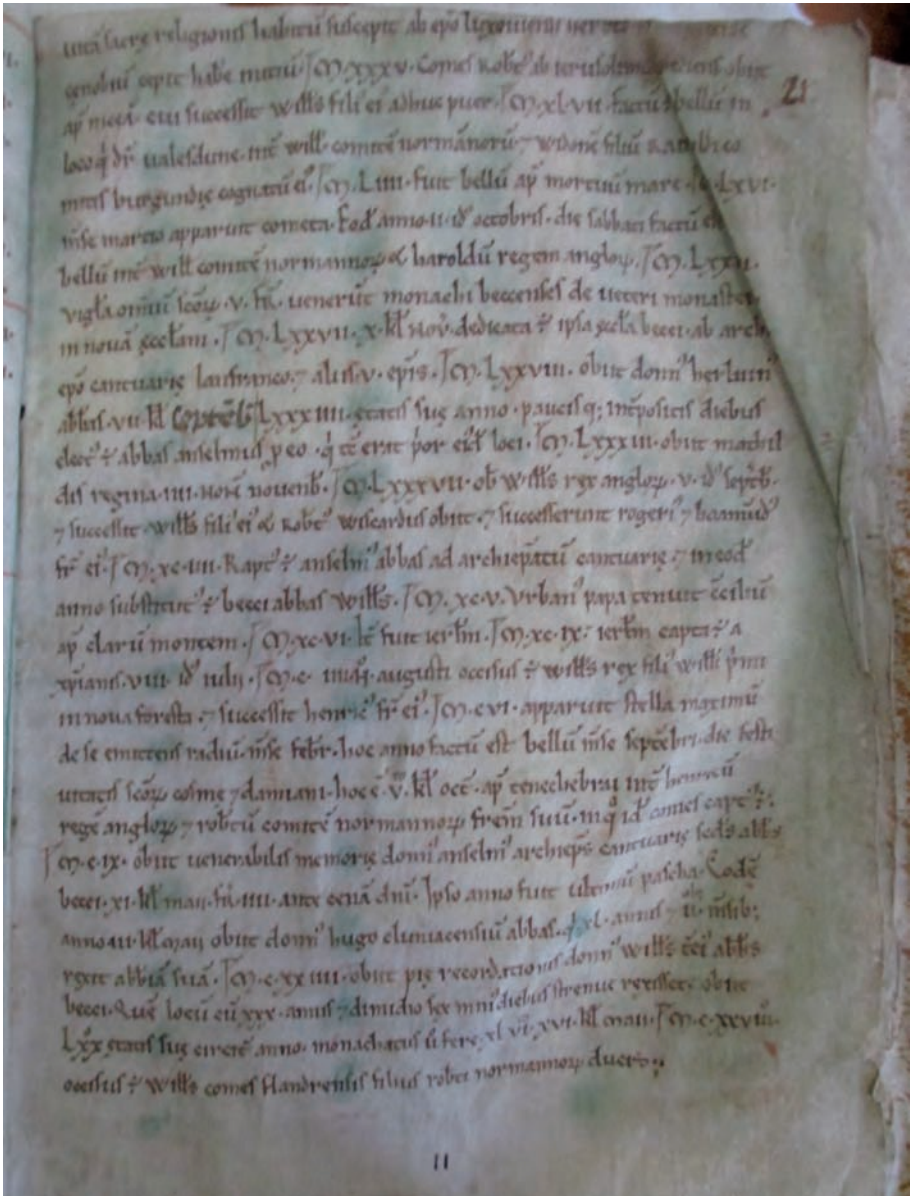 uitā sacrę religionis habitū suscepit ab epō
cęnobiū cepit habe initiū. M.xxxv. Comes Robt' ab ierusolimis obiit
21
ap' niceā. cui successit Will's fili' ei' adhuc puer. M.xl.vii. factū ÷ bellū in
loco q' dr' ualesdune. int' will' comitē normānorū. ⁊ widonē filiū
mitis burgundię cognatū ei'. M.Liiii. fuit bellū ap' mortuū mare. M.Lxvi.
m̄se marcio apparuit cometa. Eod' anno.ii.id' octobris. die sabbati factū
bellū int' will' comitē normannoꝝ & haroldū regem angloꝝ. M.Lxxii.
vigl'a omiū scōꝝ. v. fr'. uenerūt monachi beccenses de ueteri
in nouā ęccl'am. M.Lxxvii. x. kl' Nov'. dedicata ÷ ipsa ęccl'a becci. ab
epō cantuarię lanfranco. ⁊ aliis.v. ep̄is. M.Lxxviii. obiit domn' herluin'
abbas. vii. kl' Septēb' Lxxxiiii. ętatis suę anno. paucisq; int'positis diebus
elect' ÷ abbas anselmus p eo. q' tc̄ erat p'or ei'd' loci. M.Lxxxiii. obiit mathil
dis regina.iiii. Non' nouenb'. M.Lxxxvii. ob' Will's rex angloꝝ. v. id' septēb'.
⁊ successit Will's fili' ei' & Robt' wiscardus obiit. ⁊ successerunt rogeri' ⁊ boamūd'
fr' ei'. M.xc.iii. Rapt' ÷ anselm' abbas ad archiep̄atū cantuarię. ⁊ in eod'
anno substitut' ÷ becci abbas Will's. M.xc.v. Vrban' papa tenuit c̄ciliū
ap' clarū montem. M.xc.vi. it' fuit ierl'm. M.xc.ix. ierl'm capta ÷ a
xp̄ianis. viii. id' iulii. M.c. augusti occisus ÷ Will's rex fili' will'i p'mi
in noua foresta. ⁊ successit henric' fr' ei'. M.c.vi. apparuit stella maximū
de se emittens radiū. m̄se febr'. hoc anno factū est bellū m̄se septēbri. die festi
uitatis scōꝝ cosmę ⁊ damiani. hoc ē. v. kl' oct'. ap' tenechebrai int' henricū
regē angloꝝ ⁊ rob'tū comitē normannoꝝ fr̄em suū. in q' id' comes capt' ÷.
M.c.ix. obiit uenerabilis memorię domn' anselm' archiep̄s cantuarię sed's abb's
becci. xi. kl' maii. fr'.iiii. ante cenā dn̄i. Ipso anno fuit ultimū pascha. Eodē
anno iii. kl' maii obiit domn' hugo cluniacensiū abbas. q' xl. annis ⁊ m̄sib;
rexit abbiā suā. M.c.xxiiii. obiit pię recordationis domn' Will's t'ci' abb's
becci. Quē locū cū xxx. annis ⁊ dimidio sex min' diebus strenue rexisset. obiit
Lxx ętatis suę circit' anno. monachatus ū fere xl vi. xvi. kl' maii. M.c.xxviii.
occisus ÷ Will's comes flandrensis filius rob'ti normannoꝝ ducis.
11